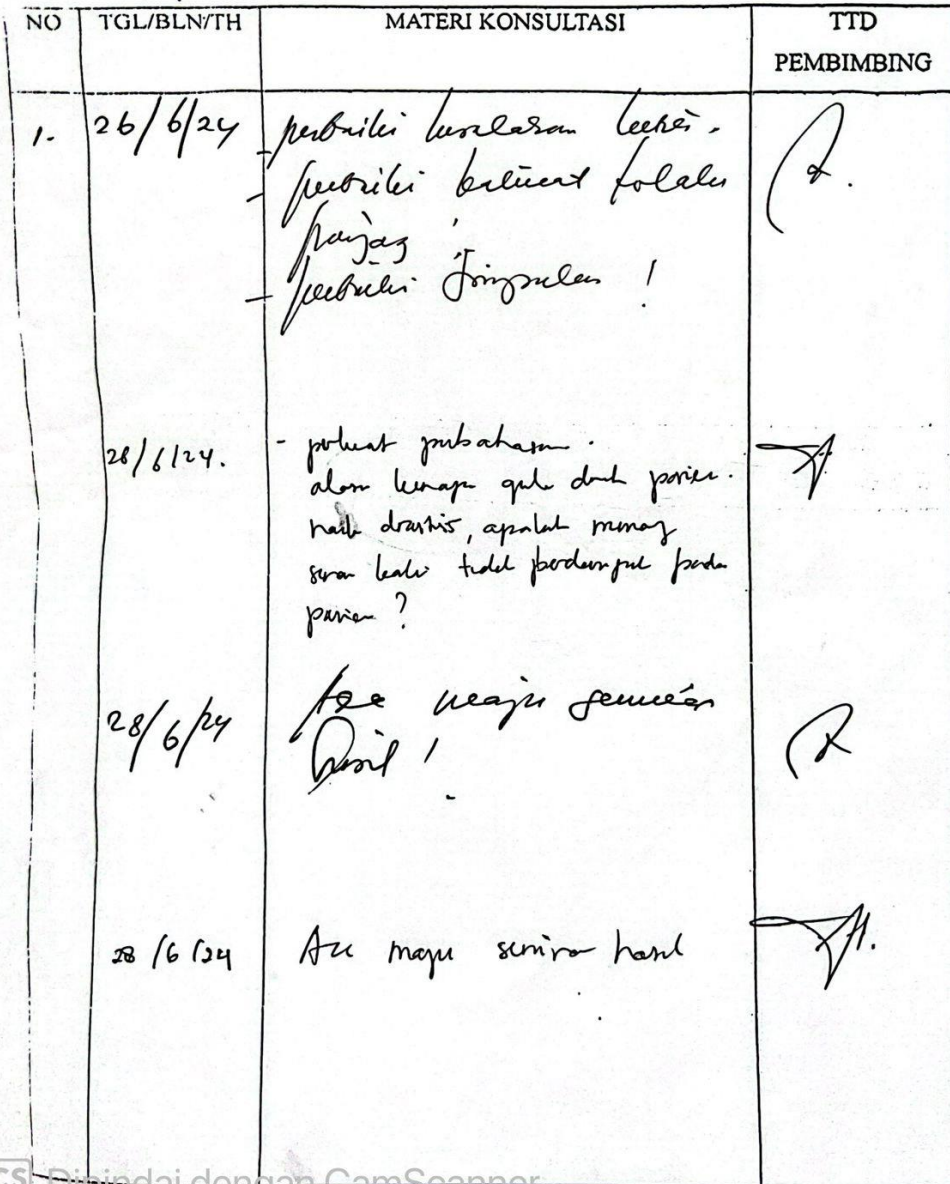 NO TGL/BLN/TH MATERI KONSULTASI TTD
PEMBIMBING
1. 26/6/24 - perbaiki kesalahan
- perbaiki kalimat
- perbaiki simpulan !
28/6/24. - perkuat pembahasan.
kenapa gula darah pasien
naik drastis, apakah memang
tidak pada
pasien ?
28/6/24 Acc maju seminar
hasil !
28/6/24 Acc maju seminar hasil
CS Dipindai dengan CamScanner